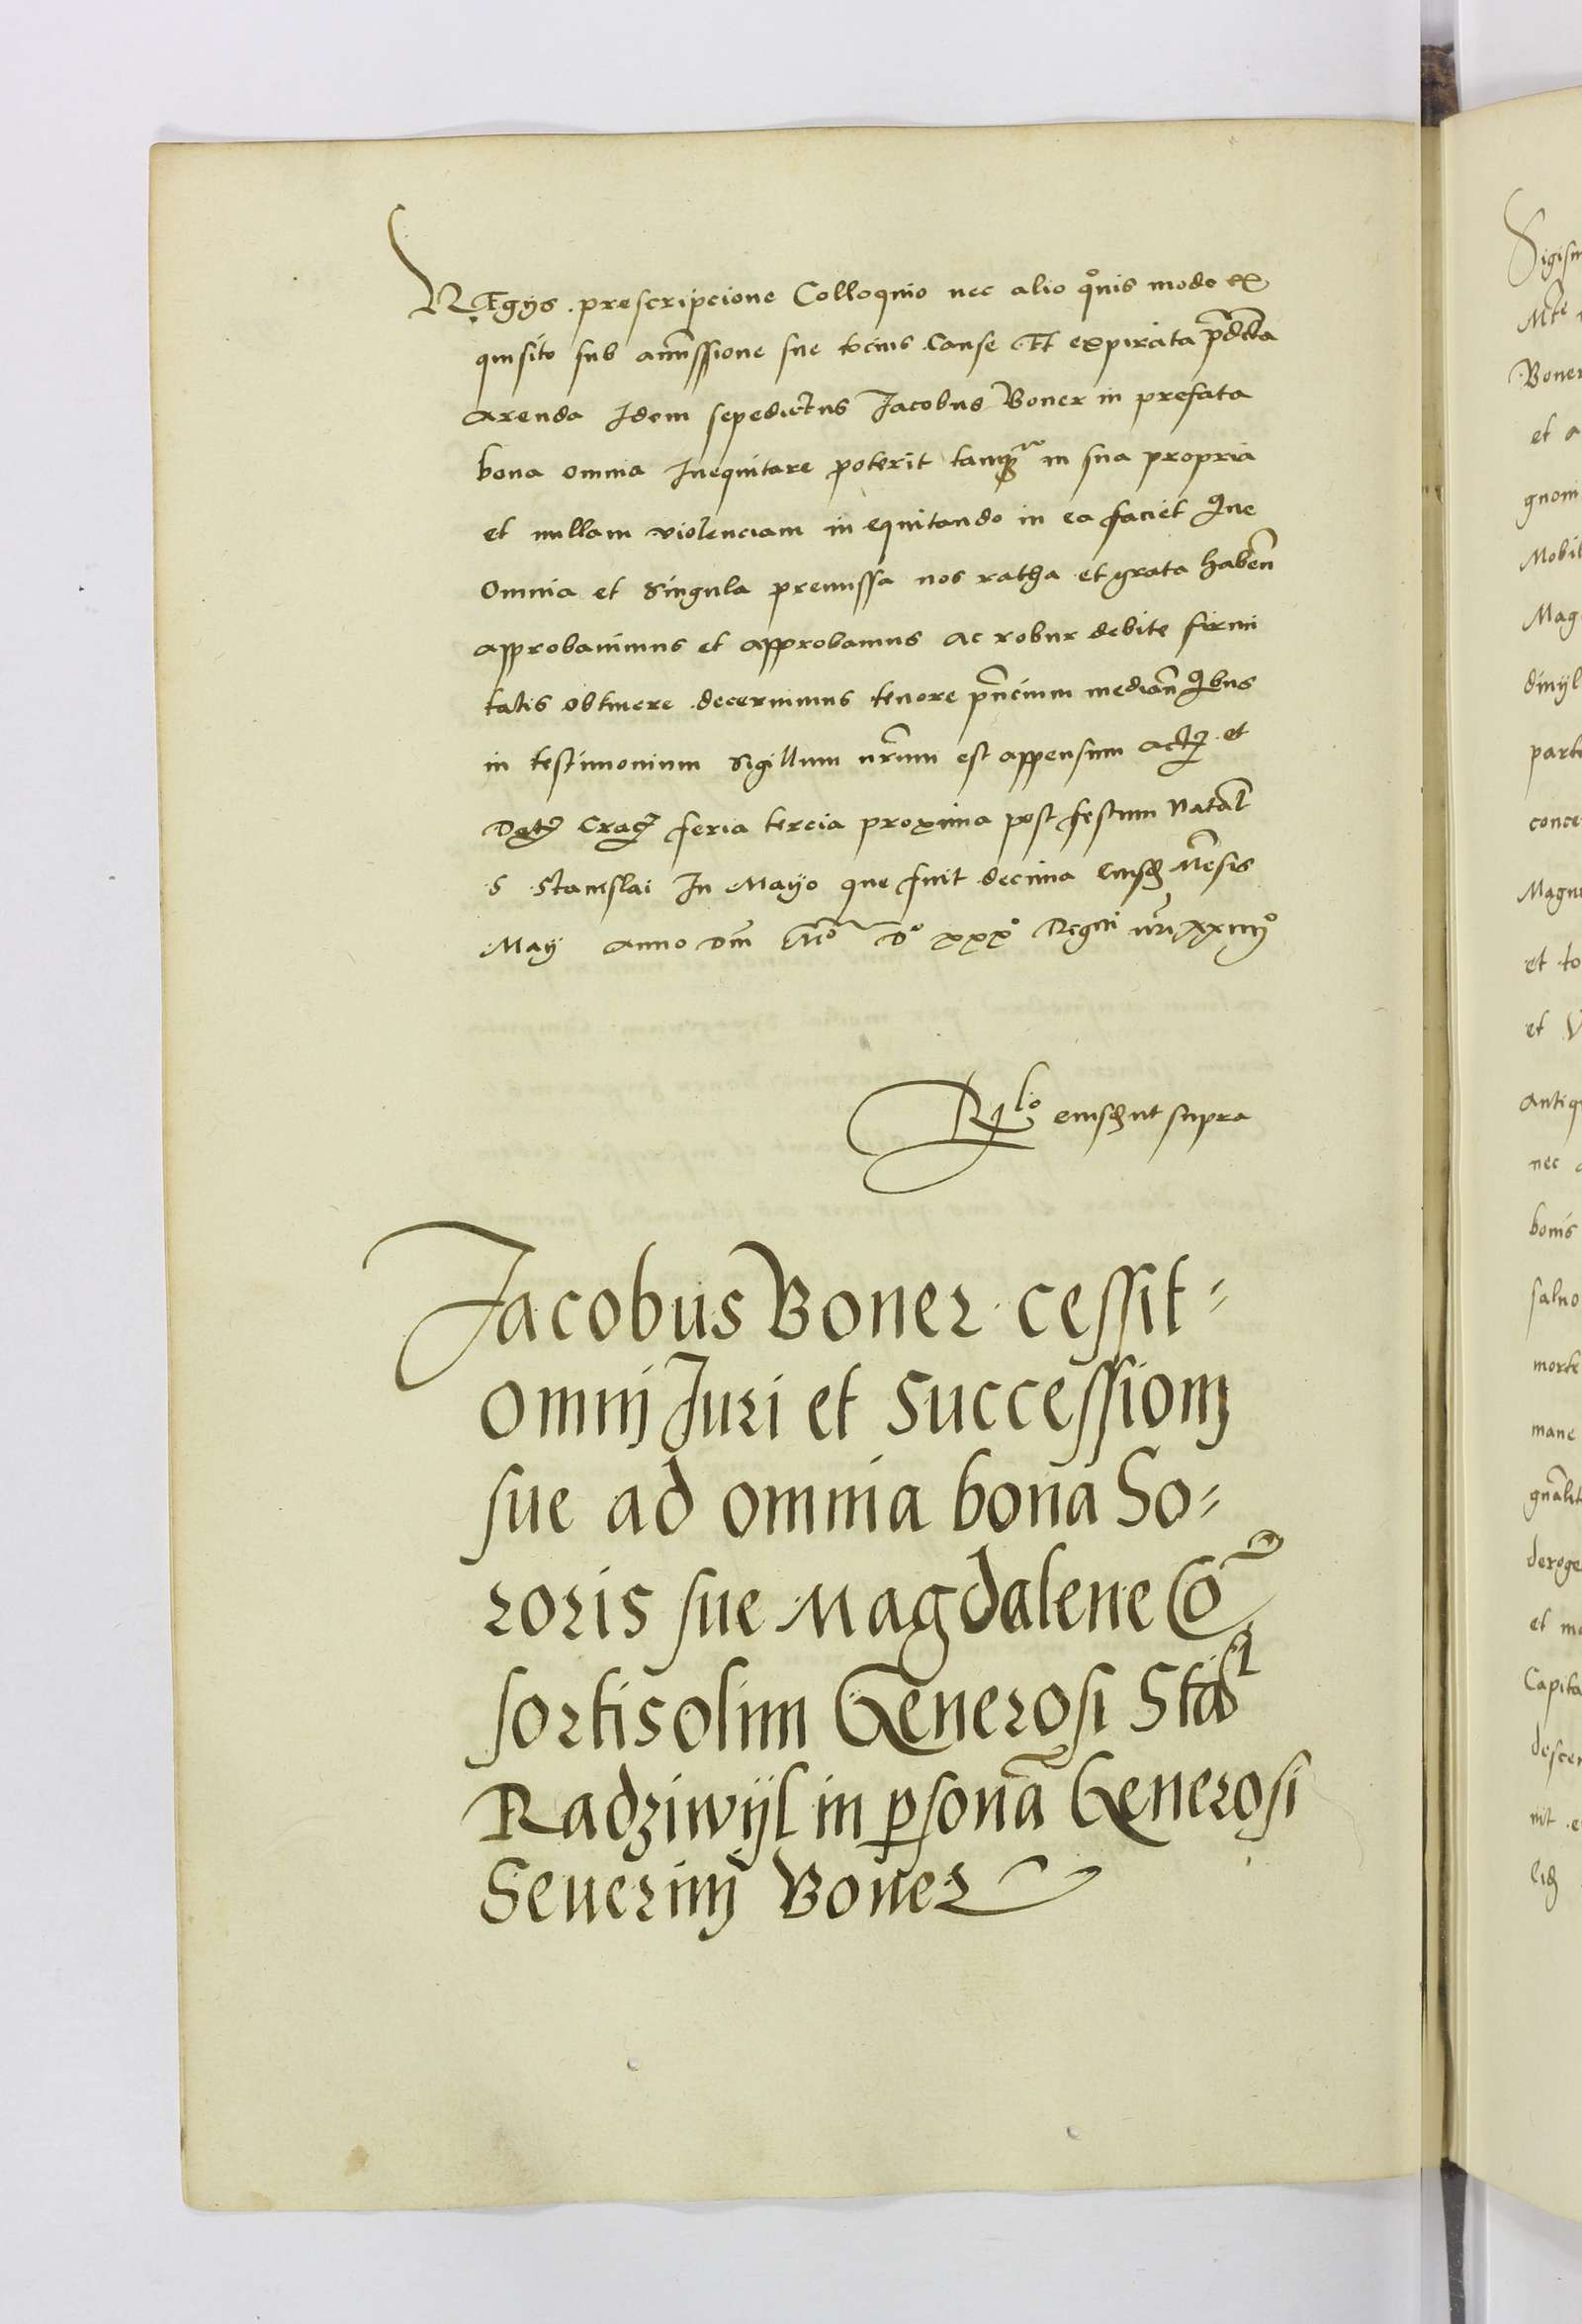 REgijs prescripcione Colloquio nec alio quouis modo ex
quisito sub amissione sue tocius Cause Et expirata predicta
arenda Idem sepedictus Jacobus Boner in prefata
bona omnia Inequitare poterit tamquam in sua propria
et nullam violenciam in equitando in ea faciet Que
Omnia et Singula premissa nos ratha et grata haben
approbauimus et approbamus ac robur debite firmi
tatis obtinere decernimus tenore pncium median Quibus
in testimonium Sigillum nrum est appensum Act et
Dat Crac feria tercia proxima post festum Natal
S Stanislai In Mayo que fuit decima eiusd Mesis
Maij anno Dm Mo Do xxxo Regni nri xxiiijo
Rlo eiusd ut supra
Jacobus Boner cessit=
omnij Juri et Successionj
sue ad omnia bona So=
roris sue Magdalene Co
sortis olim Generosi Stasl
Radziwyl in psona Generosi
Seuerinj Boner
Sigism
Mte
Boner
et a
gnoni
Mobil
Mag
diuyl
parte
conce
Magni
et to
et V
antiq
nec
bonis
saluo
morte
mane
gnalit
deroge
et mo
Capita
descen
nit e